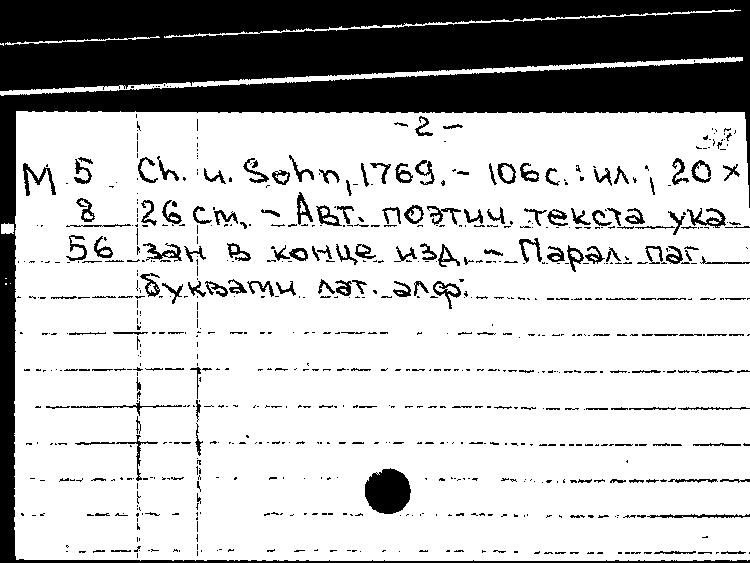 - 2 -
38
М 5 Ch. u. Sohn, 1769. - 106 с. : ил. ; 20 ×
8 26 cm. - Авт. поэтич. текста ука-
56 зан в конце изд. - Парал. паг.
буквами лат. алф.